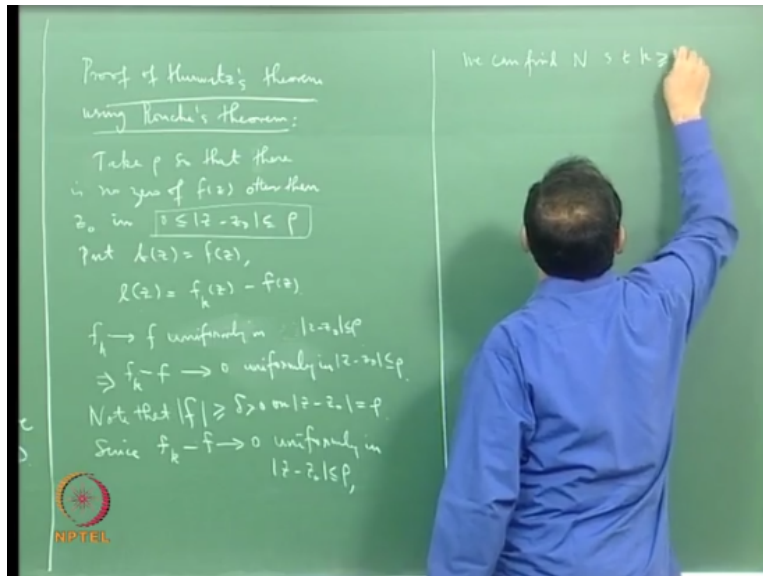 Proof of Hurwitz's theorem
using Rouche's theorem:
Take ρ so that there
is no zero of f(z) other than
z₀ in 0 ≤ |z - z₀| ≤ ρ
Put b(z) = f(z),
l(z) = f_k(z) - f(z).
f_k → f uniformly in |z-z₀| ≤ ρ
⇒ f_k - f → 0 uniformly in |z-z₀| ≤ ρ.
Note that |f| ≥ δ > 0 on |z-z₀| = ρ.
Since f_k - f → 0 uniformly in
|z-z₀| ≤ ρ,
We can find N s t k ≥
NPTEL